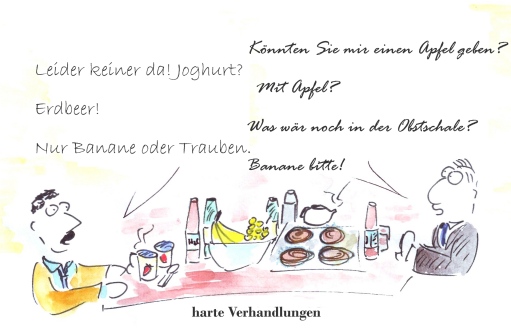 Könnten Sie mir einen Apfel geben?
Leider keiner da! Joghurt?
Mit Apfel?
Erdbeer!
Was wär noch in der Obstschale?
Nur Banane oder Trauben.
Banane bitte!
harte Verhandlungen